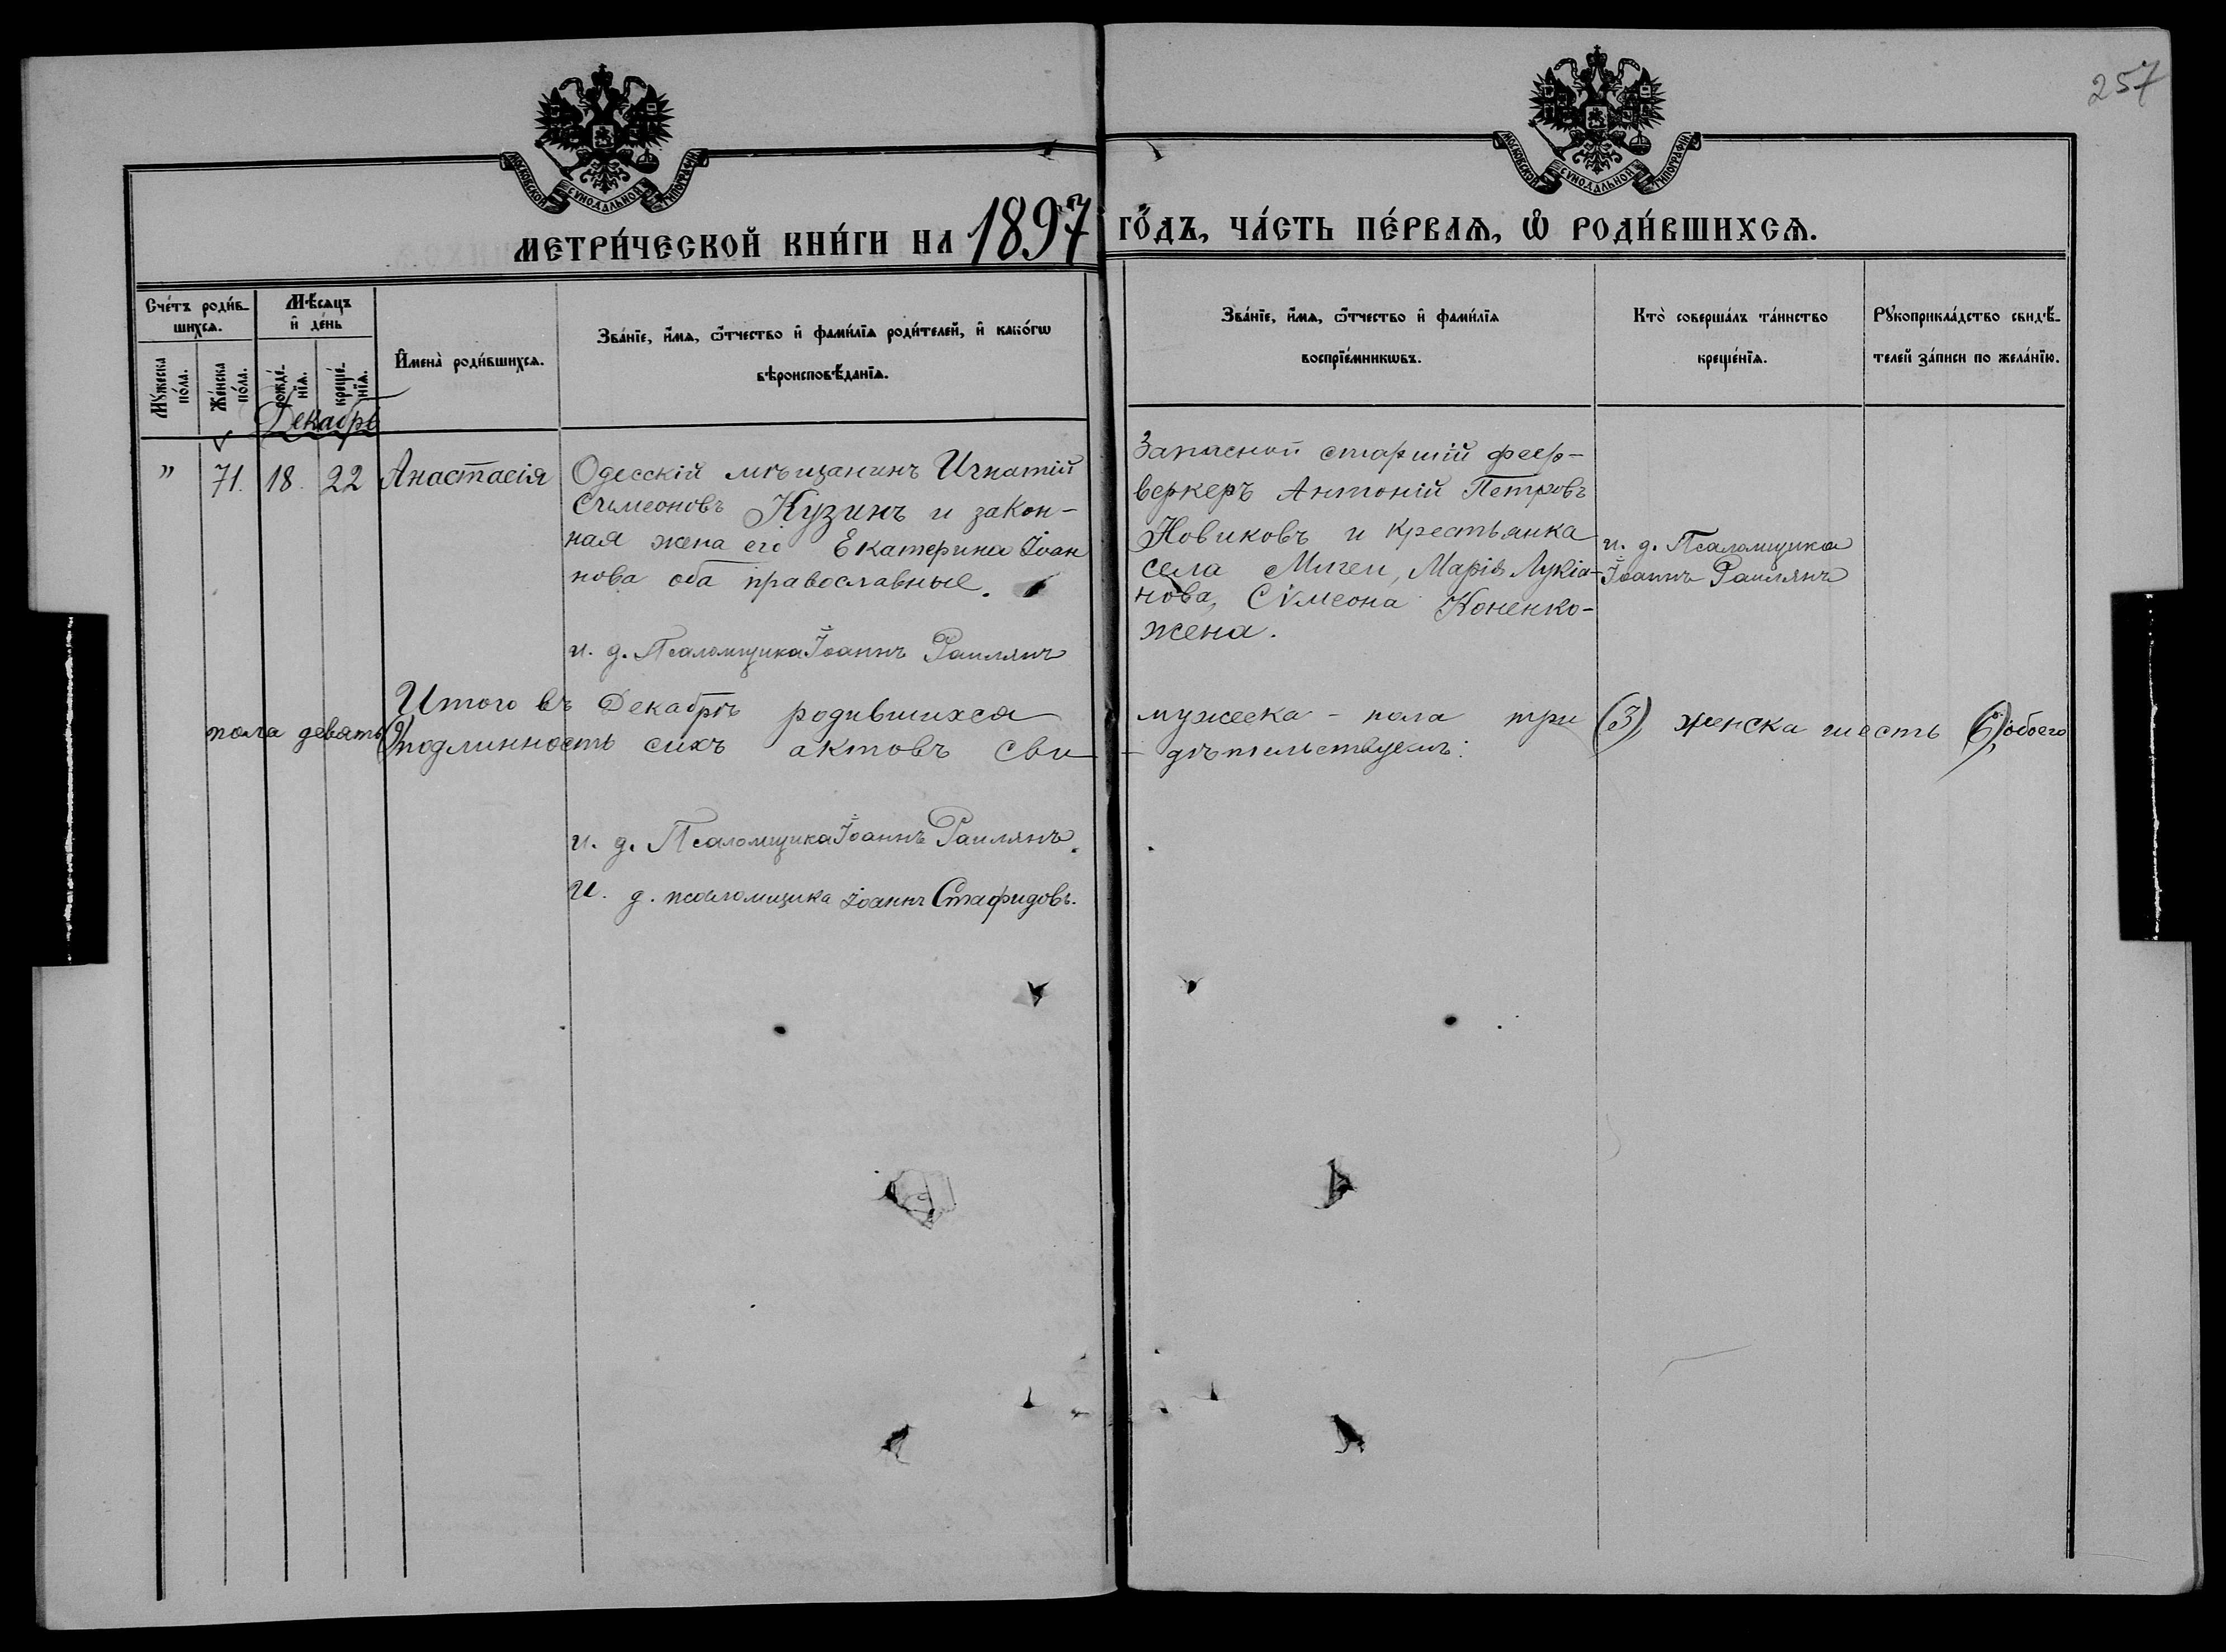 257
МОСКОВСКОЙ СѴНОДАЛЬНОЙ ТИПОГРАФІИ
МОСКОВСКОЙ СѴНОДАЛЬНОЙ ТИПОГРАФІИ
МЕТРИ́ЧЕСКОЙ КНИ́ГИ НА 1897 ГО́ДЪ, ЧА́СТЬ ПЕ́РВАѦ, Ѡ҆ РОДИ́ВШИХСѦ.
Сче́тъ роди́в-
шихсѧ.
Мѣ́сѧцъ
и҆ де́нь
Мꙋ́жеска
по́ла.
Же́нска
по́ла.
рожде́-
нїѧ.
креще́-
нїѧ.
И҆мена̀ роди́вшихсѧ.
Зва́нїе, и҆́мѧ, ѻ҆́тчество и҆ фами́лїѧ роди́телей, и҆ како́гѡ
вѣроисповѣ́данїѧ.
Зва́нїе, и҆́мѧ, ѻ҆́тчество и҆ фами́лїѧ
воспрїе́мникѡвъ.
Кто̀ соверша́лъ та́инство
креще́нїѧ.
Рꙋкоприкла́дство свидѣ́-
телей за́писи по жела́нїю.
Декабрь
" 71. 18. 22 Анастасія
Одесскій мѣщанинъ Игнатій
Сѵмеоновъ Кузинъ и закон-
ная жена его Екатерина Іоан
нова оба православные.
и. д. Псаломщика Іоаннъ Раилянъ
Запасной старшій феер-
веркеръ Антоній Петровъ
Новиковъ и крестьянка
села Мигеи, Марія Лукіа-
нова, Сѵмеона Коненко-
жена.
и. д. Псаломщика
Іоаннъ Раилянъ
Итого въ Декабрѣ родившихся мужеска - пола три (3), женска шесть (6), обоего
пола девять (9)
подлинность сихъ актовъ сви - дѣтельствуемъ:
и. д. Псаломщика Іоаннъ Раилянъ.
И. д. псаломщика Іоаннъ Стафидовъ.